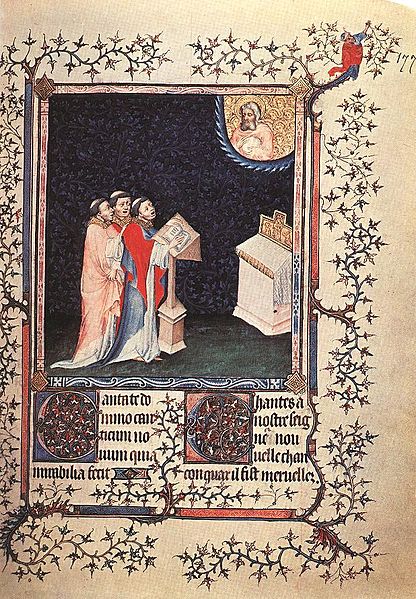 177
Cantate do
mino can
ticum no
uum quia
mirabilia fecit
Chantes a
nostre seig
nou
uelle chan
con quar il fist merueilles.